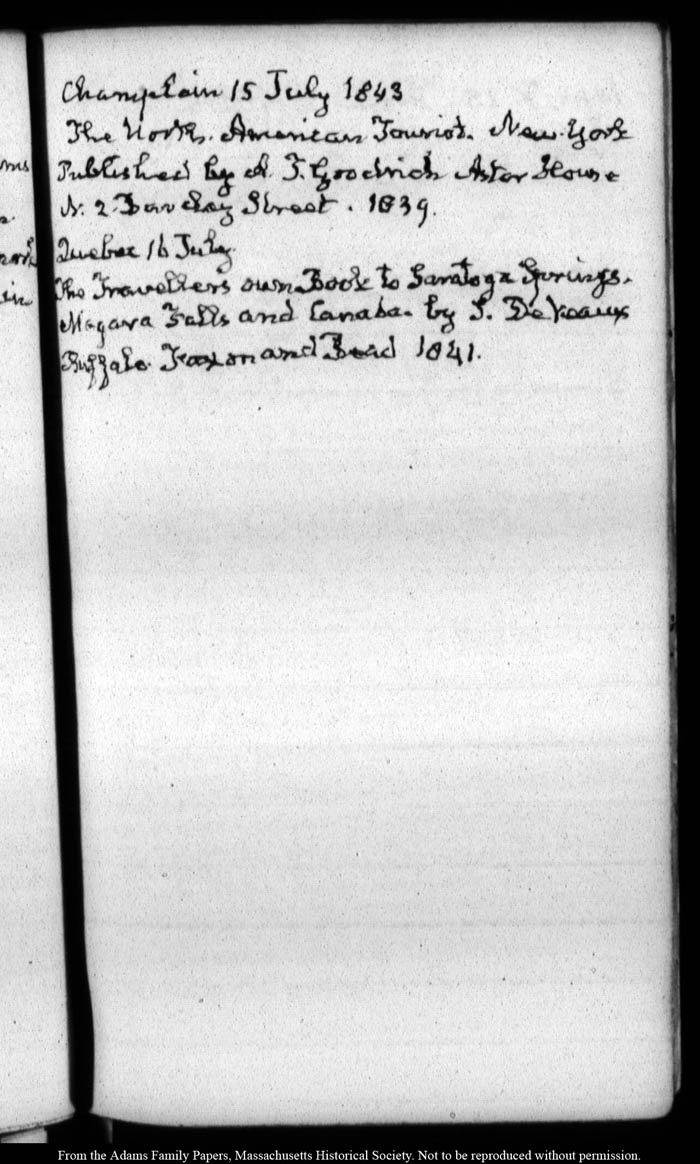 Champlain 15 July 1843
The North American Tourist. New-York
Published by A. T. Goodrich Astor House
N. 2 Barclay Street. 1839.
Quebec 16 July.
The Traveller's own Book to Saratoga Springs.
Niagara Falls and Canada. by S. DeVeaux
Buffalo. Faxon and Read 1841.
ms
in
From the Adams Family Papers, Massachusetts Historical Society. Not to be reproduced without permission.